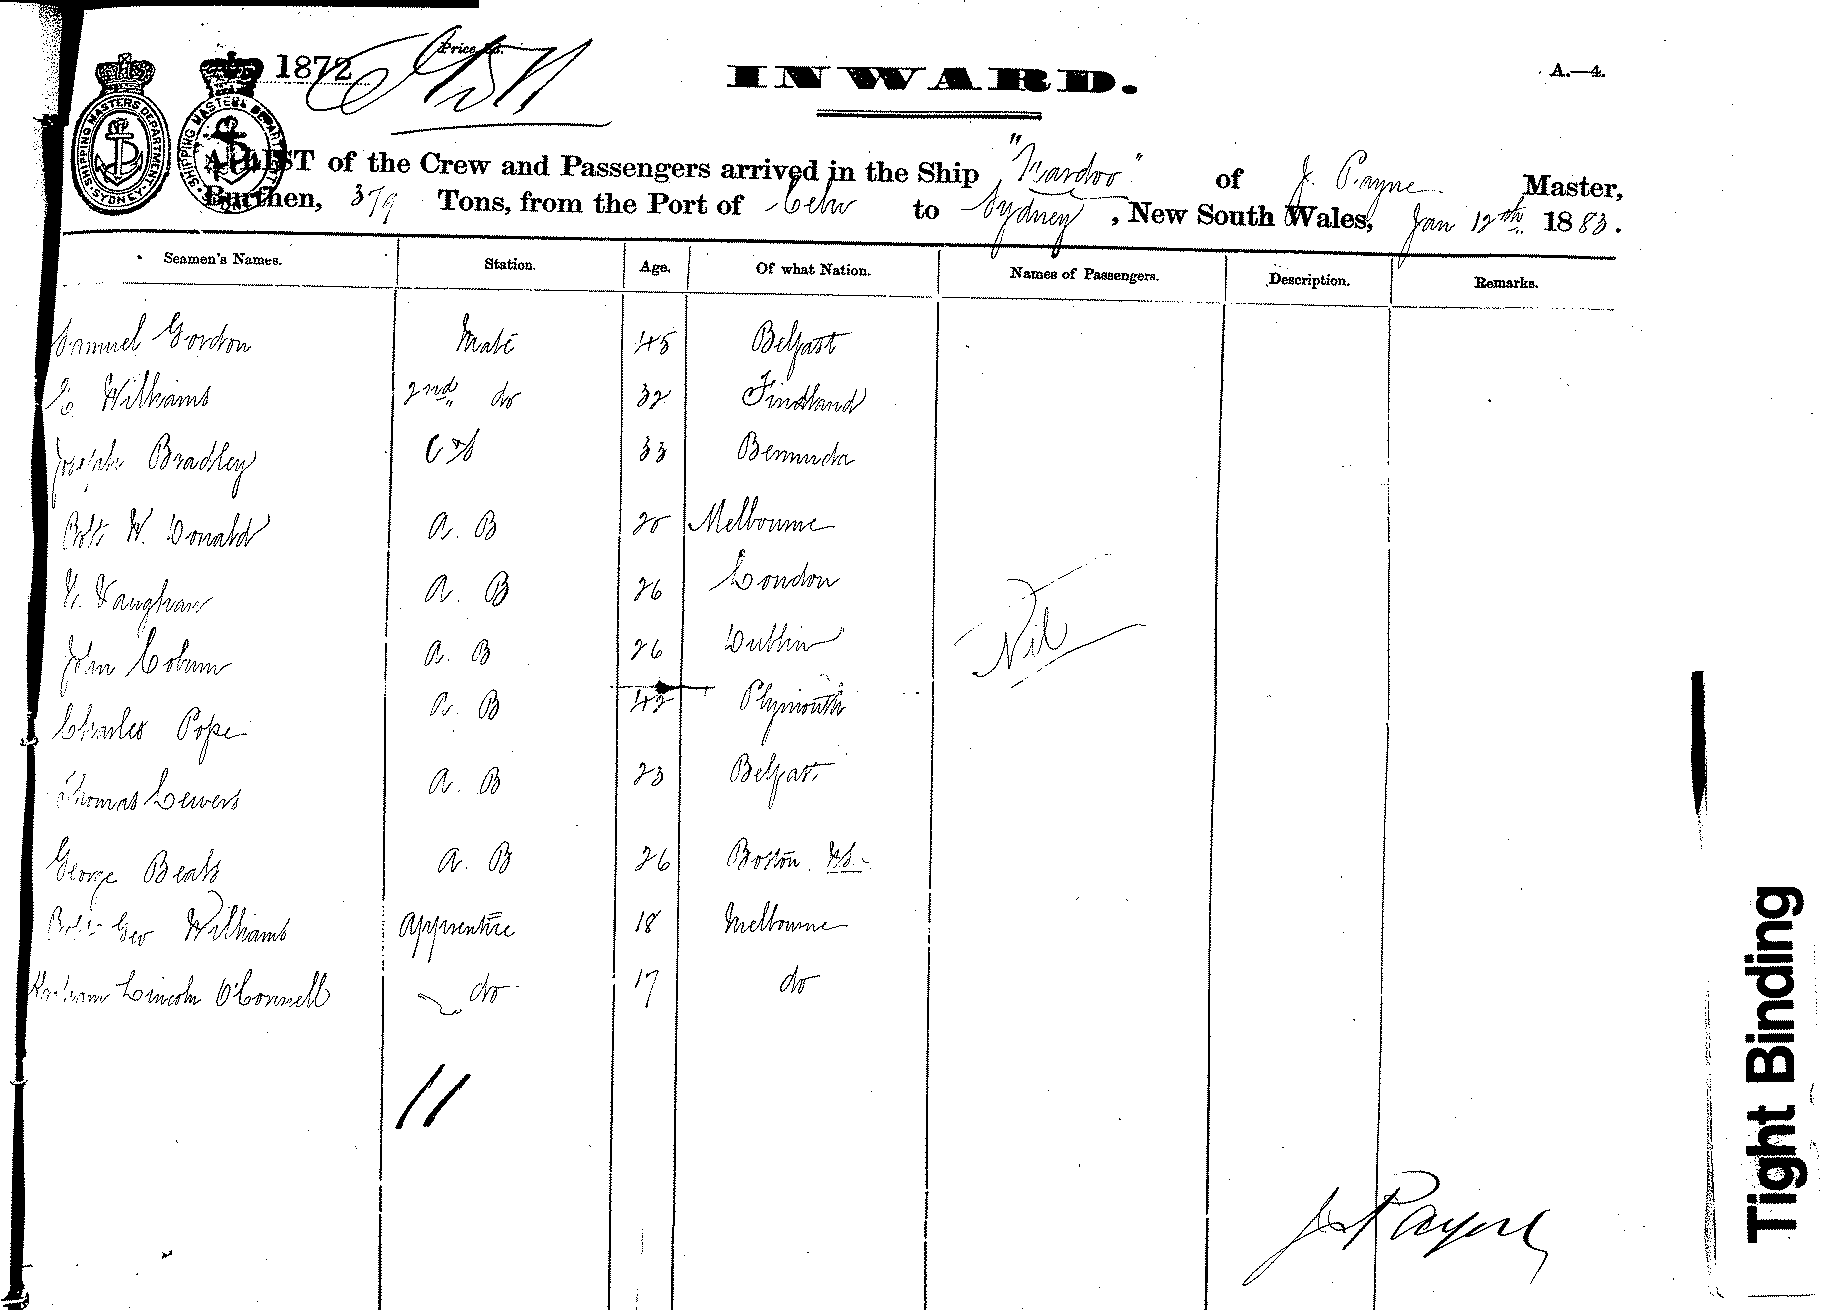 Price 1s.
1872
INWARD.
A.—4.
SHIPPING MASTERS DEPARTMENT SYDNEY
SHIPPING MASTERS DEPARTMENT SYDNEY
A LIST of the Crew and Passengers arrived in the Ship "Nardoo" of J. Payne Master,
Burthen, 379 Tons, from the Port of Cebu to Sydney, New South Wales, Jan 12th 1883.
Seamen's Names. Station. Age. Of what Nation. Names of Passengers. Description. Remarks.
Samuel Gordon Mate 45 Belfast
Williams 2nd do 32 Findland
Joseph Bradley 33 Bermuda
Robt W. Donald A. B 20 Melbourne
Vaughan A. B 26 London
John Coburn A. B 26 Dublin
Nil
Charles Pope A. B 42 Plymouth
Thomas Lewers A. B 23 Belfast
George Beals A. B 26 Boston U.S.
Robt Geo Williams Apprentice 18 Melbourne
Abraham Lincoln O'Connell do 17 do
11
J Payne
Tight Binding